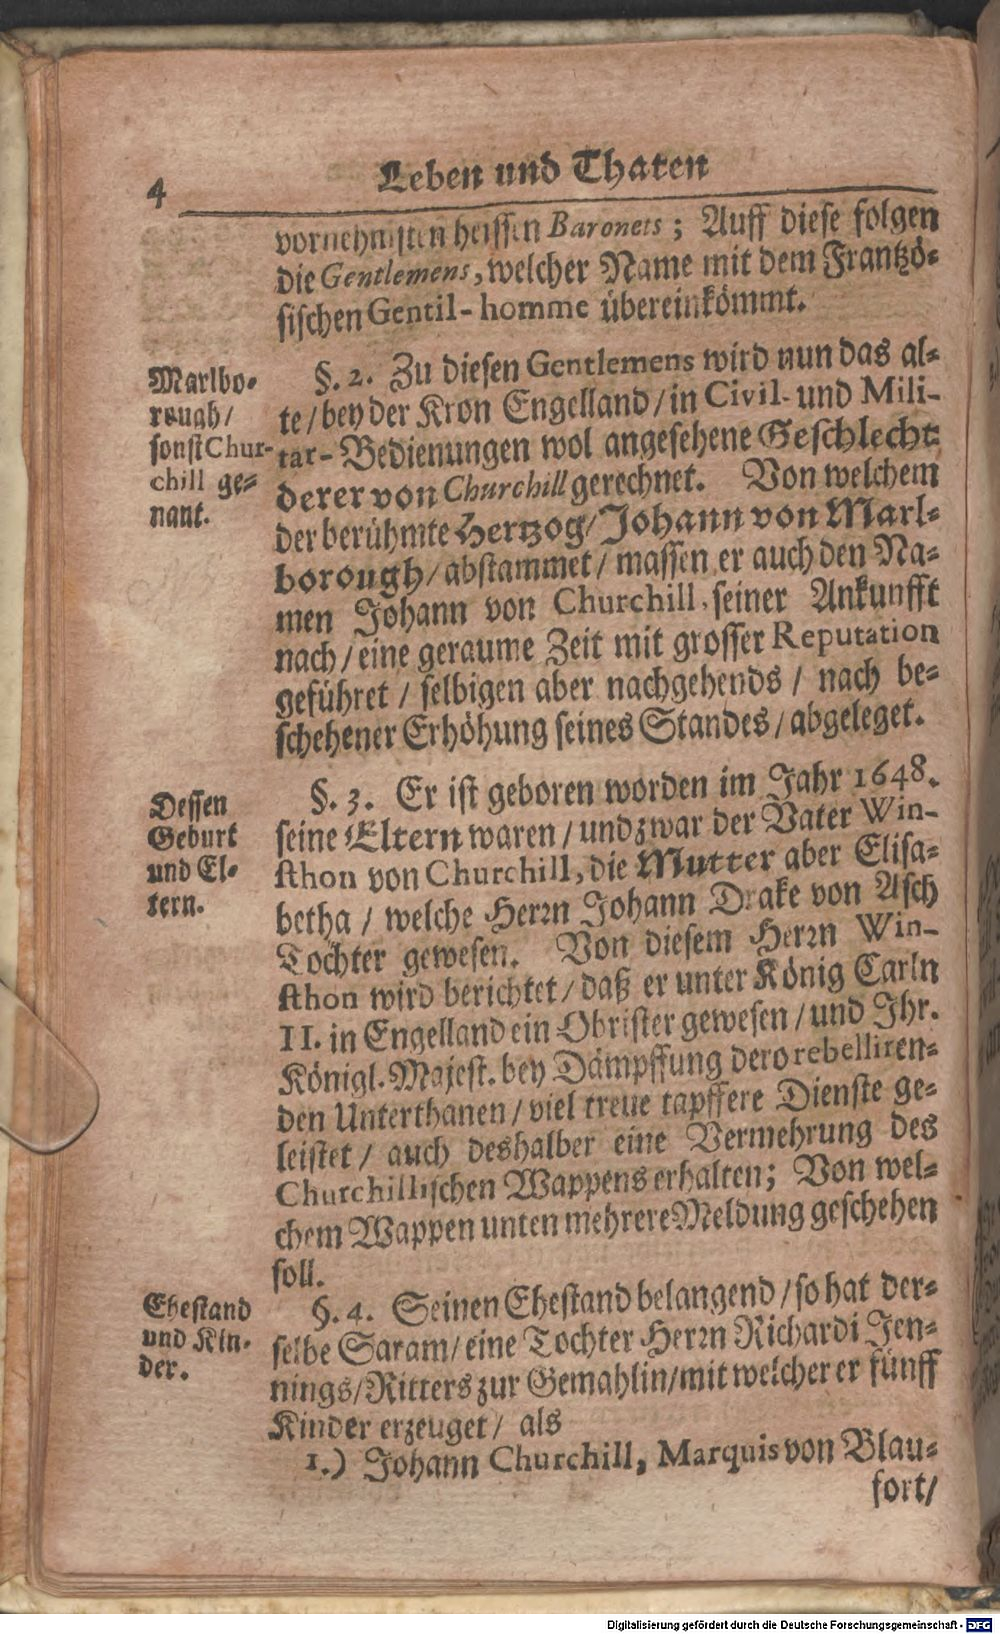 4
Leben und Thaten
vornehmsten heissen Baronets; Auff diese folgen
die Gentlemens, welcher Name mit dem Frantzö-
sischen Gentil-homme übereinkömmt.
Marlbo-
rough/
sonst Chur-
chill ge-
nant.
§. 2. Zu diesen Gentlemens wird nun das al-
te/ bey der Kron Engelland/ in Civil- und Mili-
tar-Bedienungen wol angesehene Geschlecht
derer von Churchill gerechnet. Von welchem
der berühmte Hertzog/ Johann von Marl-
borough/ abstammet/ massen er auch den Na-
men Johann von Churchill, seiner Ankunfft
nach/ eine geraume Zeit mit grosser Reputation
geführet/ selbigen aber nachgehends/ nach be-
schehener Erhöhung seines Standes/ abgeleget.
Dessen
Geburt
und El-
tern.
§. 3. Er ist geboren worden im Jahr 1648.
seine Eltern waren/ und zwar der Vater Win-
sthon von Churchill, die Mutter aber Elisa-
betha/ welche Herrn Johann Drake von Asch
Tochter gewesen. Von diesem Herrn Win-
sthon wird berichtet/ daß er unter König Carln
II. in Engelland ein Obrister gewesen/ und Ihr.
Königl. Majest. bey Dämpffung dero rebelliren-
den Unterthanen/ viel treue tapffere Dienste ge-
leistet/ auch deshalber eine Vermehrung des
Churchillischen Wappens erhalten; Von wel-
chem Wappen unten mehrere Meldung geschehen
soll.
Ehestand
und Kin-
der.
§. 4. Seinen Ehestand belangend/ so hat der-
selbe Saram/ eine Tochter Herrn Richardi Jen-
nings/ Ritters zur Gemahlin/ mit welcher er fünff
Kinder erzeuget/ als
1.) Johann Churchill, Marquis von Blau-
fort/
Digitalisierung gefördert durch die Deutsche Forschungsgemeinschaft - DFG